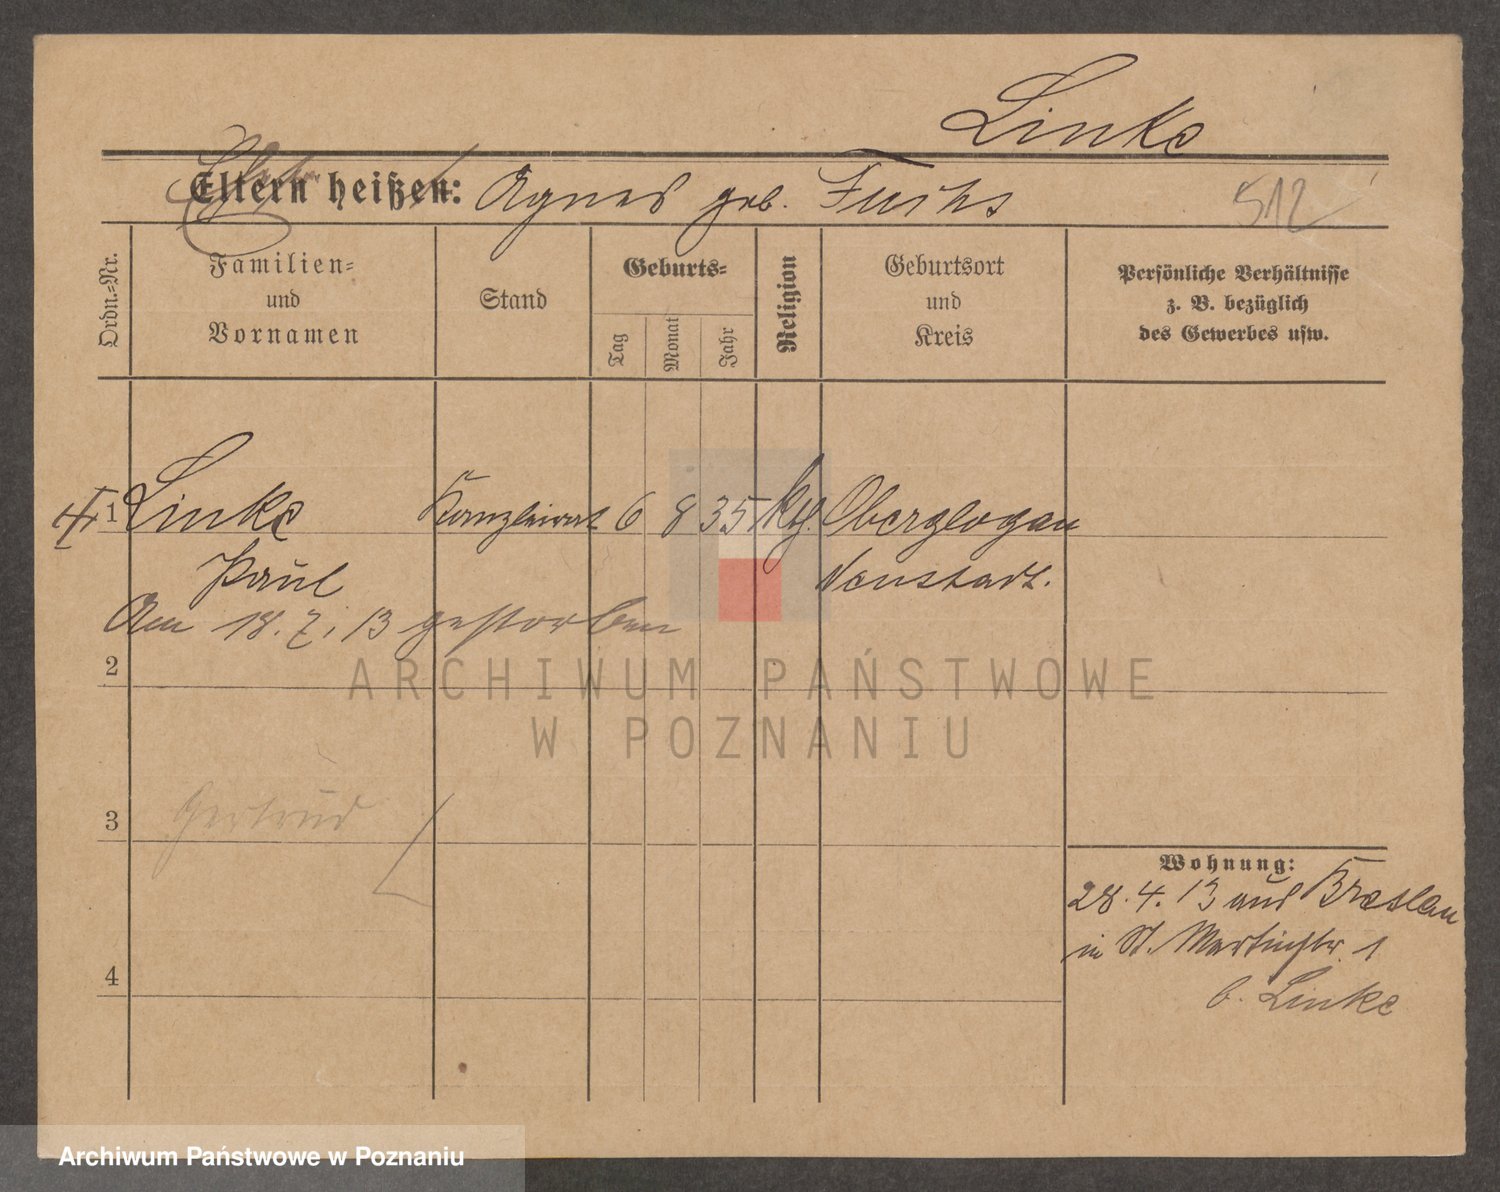 Linke
Eltern heißen: Agnes geb. Fuchs
512
Ordn.=Nr.
Familien=
und
Vornamen
Stand
Geburts=
Tag
Monat
Jahr
Religion
Geburtsort
und
Kreis
Persönliche Verhältnisse
z. B. bezüglich
des Gewerbes usw.
1 Linke Kanzleirat 6 8 35 kth. Oberglogau
Paul Neustadt.
Am 18. 7. 13 gestorben
2
ARCHIWUM PAŃSTWOWE
W POZNANIU
Gertrud
3
Wohnung:
28. 4. 13 aus Breslau
in St. Martinstr. 1
b. Linke
4
Archiwum Państwowe w Poznaniu